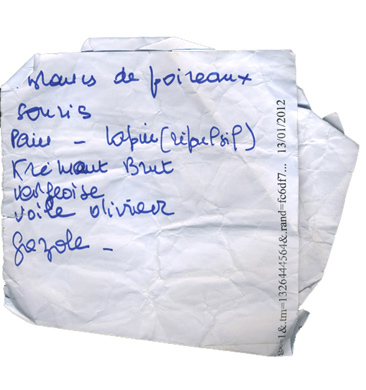 blancs de poireaux
souris
Pain - lapin (répulsif)
Krémant Brut
vergeoise
voile olivier
gazole -
=1&.tm=1326444564&.rand=fc6df7... 13/01/2012